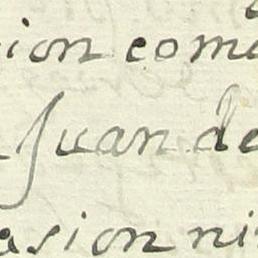 ion com
Juan de
asion ni